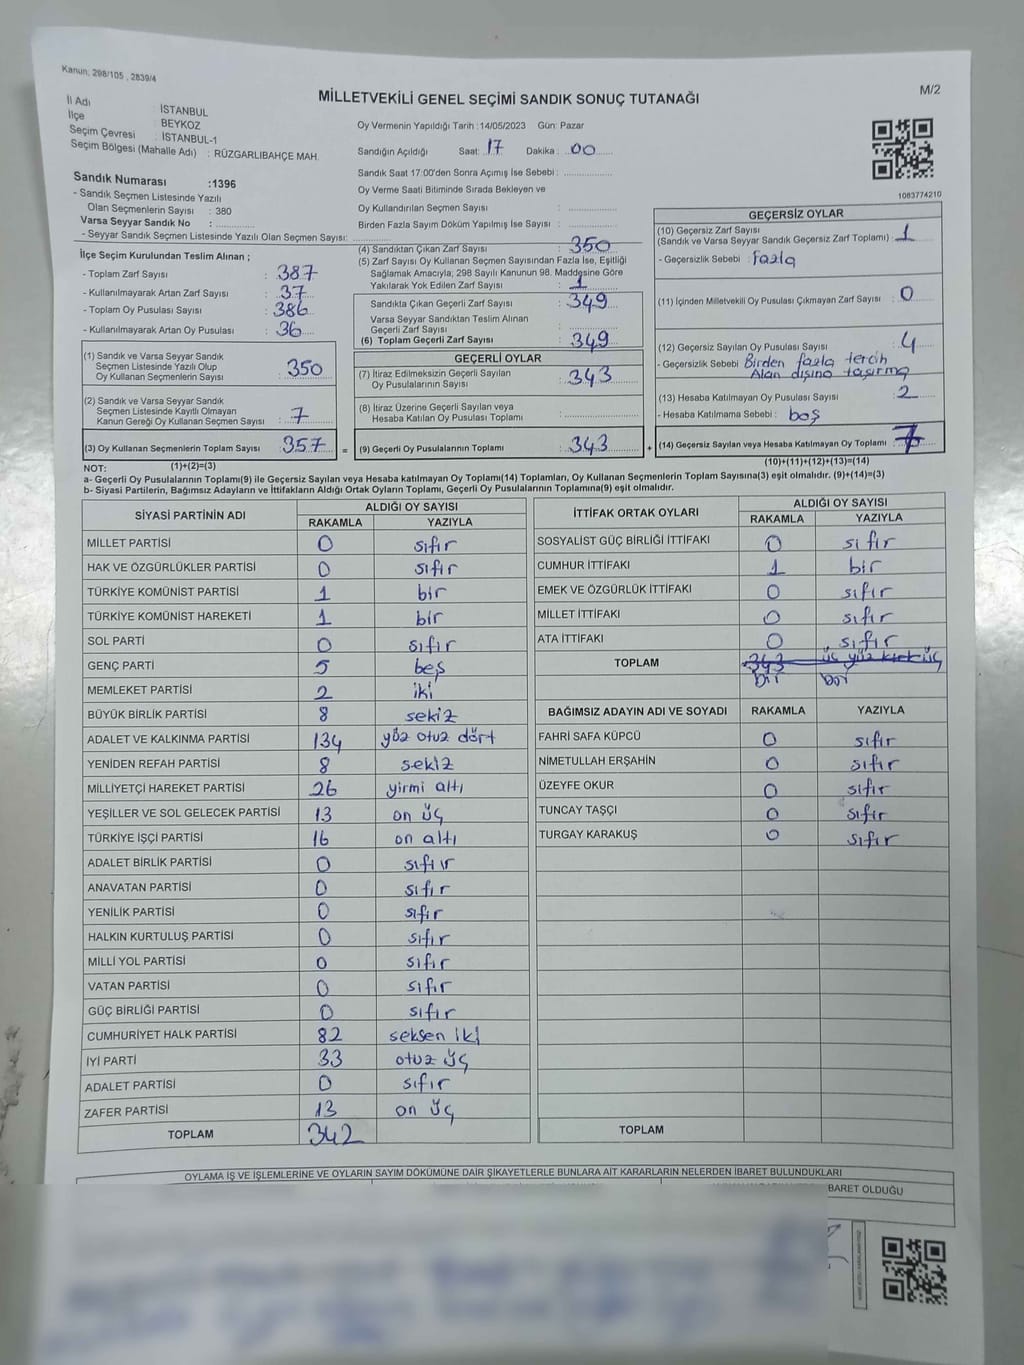 Kanun, 298/105 , 2839/4
MİLLETVEKİLİ GENEL SEÇİMİ SANDIK SONUÇ TUTANAĞI
M/2
İl Adı : İSTANBUL
İlçe : BEYKOZ
Seçim Çevresi : İSTANBUL-1
Seçim Bölgesi (Mahalle Adı) : RÜZGARLIBAHÇE MAH.
Oy Vermenin Yapıldığı Tarih :14/05/2023 Gün: Pazar
Sandığın Açıldığı Saat: 17 Dakika : 00
Sandık Saat 17:00'den Sonra Açımış İse Sebebi :
Oy Verme Saati Bitiminde Sırada Bekleyen ve
Oy Kullandırılan Seçmen Sayısı :
Birden Fazla Sayım Döküm Yapılmış İse Sayısı :
1083774210
Sandık Numarası :1396
- Sandık Seçmen Listesinde Yazılı
Olan Seçmenlerin Sayısı : 380
Varsa Seyyar Sandık No :
- Seyyar Sandık Seçmen Listesinde Yazılı Olan Seçmen Sayısı:
İlçe Seçim Kurulundan Teslim Alınan ;
- Toplam Zarf Sayısı : 387
- Kullanılmayarak Artan Zarf Sayısı : 37
- Toplam Oy Pusulası Sayısı : 386
- Kullanılmayarak Artan Oy Pusulası : 36
(1) Sandık ve Varsa Seyyar Sandık
Seçmen Listesinde Yazılı Olup
Oy Kullanan Seçmenlerin Sayısı : 350
(2) Sandık ve Varsa Seyyar Sandık
Seçmen Listesinde Kayıtlı Olmayan
Kanun Gereği Oy Kullanan Seçmen Sayısı : 7
(3) Oy Kullanan Seçmenlerin Toplam Sayısı : 357
(1)+(2)=(3)
(4) Sandıktan Çıkan Zarf Sayısı : 350
(5) Zarf Sayısı Oy Kullanan Seçmen Sayısından Fazla İse, Eşitliği
Sağlamak Amacıyla; 298 Sayılı Kanunun 98. Maddesine Göre
Yakılarak Yok Edilen Zarf Sayısı : 1
Sandıkta Çıkan Geçerli Zarf Sayısı : 349
Varsa Seyyar Sandıktan Teslim Alınan
Geçerli Zarf Sayısı :
(6) Toplam Geçerli Zarf Sayısı : 349
GEÇERLİ OYLAR
(7) İtiraz Edilmeksizin Geçerli Sayılan
Oy Pusulalarının Sayısı : 343
(8) İtiraz Üzerine Geçerli Sayılan veya
Hesaba Katılan Oy Pusulası Toplamı :
= (9) Geçerli Oy Pusulalarının Toplamı : 343 +
GEÇERSİZ OYLAR
(10) Geçersiz Zarf Sayısı
(Sandık ve Varsa Seyyar Sandık Geçersiz Zarf Toplamı) : 1
- Geçersizlik Sebebi : fazla
(11) İçinden Milletvekili Oy Pusulası Çıkmayan Zarf Sayısı : 0
(12) Geçersiz Sayılan Oy Pusulası Sayısı : 4
- Geçersizlik Sebebi Birden fazla tercih
Alan dışına taşırma
(13) Hesaba Katılmayan Oy Pusulası Sayısı : 2
- Hesaba Katılmama Sebebi : boş
(14) Geçersiz Sayılan veya Hesaba Katılmayan Oy Toplamı : 7
(10)+(11)+(12)+(13)=(14)
NOT:
a- Geçerli Oy Pusulaların Toplamı(9) ile Geçersiz Sayılan veya Hesaba katılmayan Oy Toplamı(14) Toplamları, Oy Kullanan Seçmenlerin Toplam Sayısına(3) eşit olmalıdır. (9)+(14)=(3)
b- Siyasi Partilerin, Bağımsız Adayların ve İttifakların Aldığı Ortak Oyların Toplamı, Geçerli Oy Pusulalarının Toplamına(9) eşit olmalıdır.
SİYASİ PARTİNİN ADI
ALDIĞI OY SAYISI
RAKAMLA YAZIYLA
MİLLET PARTİSİ 0 sıfır
HAK VE ÖZGÜRLÜKLER PARTİSİ 0 sıfır
TÜRKİYE KOMÜNİST PARTİSİ 1 bir
TÜRKİYE KOMÜNİST HAREKETİ 1 bir
SOL PARTİ 0 sıfır
GENÇ PARTİ 5 beş
MEMLEKET PARTİSİ 2 iki
BÜYÜK BİRLİK PARTİSİ 8 sekiz
ADALET VE KALKINMA PARTİSİ 134 yüz otuz dört
YENİDEN REFAH PARTİSİ 8 sekiz
MİLLİYETÇİ HAREKET PARTİSİ 26 yirmi altı
YEŞİLLER VE SOL GELECEK PARTİSİ 13 on üç
TÜRKİYE İŞÇİ PARTİSİ 16 on altı
ADALET BİRLİK PARTİSİ 0 sıfır
ANAVATAN PARTİSİ 0 sıfır
YENİLİK PARTİSİ 0 sıfır
HALKIN KURTULUŞ PARTİSİ 0 sıfır
MİLLİ YOL PARTİSİ 0 sıfır
VATAN PARTİSİ 0 sıfır
GÜÇ BİRLİĞİ PARTİSİ 0 sıfır
CUMHURİYET HALK PARTİSİ 82 seksen iki
İYİ PARTİ 33 otuz üç
ADALET PARTİSİ 0 sıfır
ZAFER PARTİSİ 13 on üç
TOPLAM 342
İTTİFAK ORTAK OYLARI
ALDIĞI OY SAYISI
RAKAMLA YAZIYLA
SOSYALİST GÜÇ BİRLİĞİ İTTİFAKI 0 sıfır
CUMHUR İTTİFAKI 1 bir
EMEK VE ÖZGÜRLÜK İTTİFAKI 0 sıfır
MİLLET İTTİFAKI 0 sıfır
ATA İTTİFAKI 0 sıfır
TOPLAM 343 üç yüz kırk üç
bir
BAĞIMSIZ ADAYIN ADI VE SOYADI RAKAMLA YAZIYLA
FAHRİ SAFA KÜPCÜ 0 sıfır
NİMETULLAH ERŞAHİN 0 sıfır
ÜZEYFE OKUR 0 sıfır
TUNCAY TAŞÇI 0 sıfır
TURGAY KARAKUŞ 0 sıfır
TOPLAM
OYLAMA İŞ VE İŞLEMLERİNE VE OYLARIN SAYIM DÖKÜMÜNE DAİR ŞİKAYETLERLE BUNLARA AİT KARARLARIN NELERDEN İBARET BULUNDUKLARI
BARET OLDUĞU